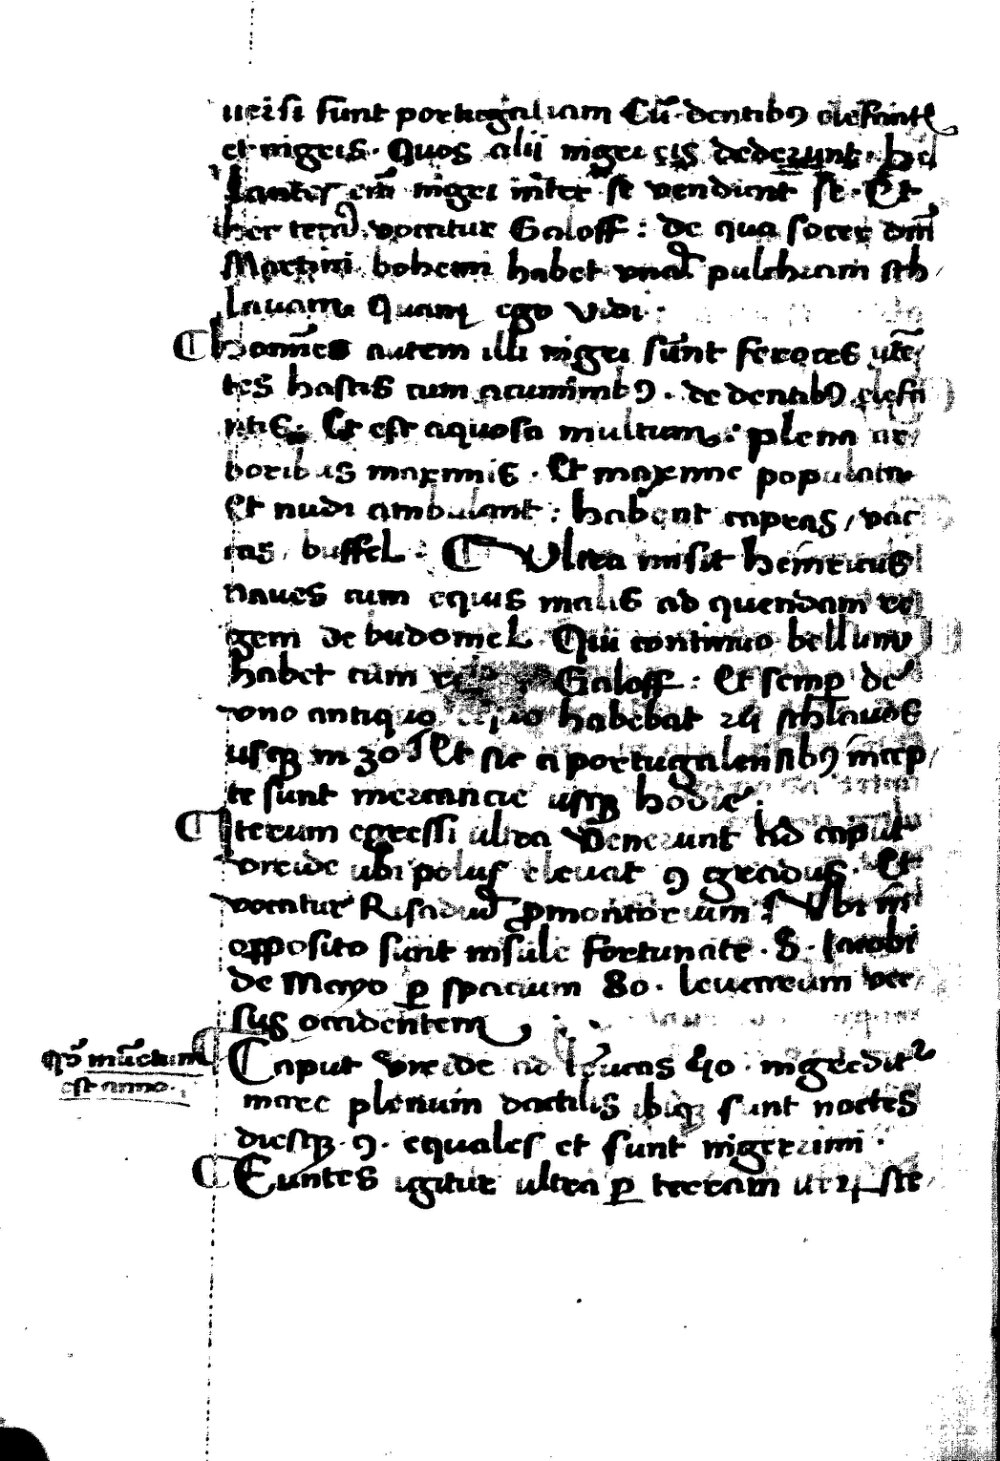 uersi sunt portugaliam Cū dentibꝯ elefant
et nigris. Quos alii nigri eis dederunt. bel
lantes em̄ nigri inter se vendunt se. Et
hec terra vocatur Galoff: de qua socer dn̄i
Martini bohemi habet vnā pulchram sch/
lauam Quam ego vidi.
Homīes autem illi nigri sunt feroces vtē/
tes hastis cum acuminibꝯ. de dentibꝯ elefā
ntis. Et est aquosa multum: plena ar/
boribus maximis. Et maxime populata
et nudi ambulant: habent capras / vac
cas / buffel. Vltra misit heinricus
naues cum equis malis ad quendam re
gem de budomel. Qui continuo bellum
habet cum Galoff: Et semꝑ de
vno antiquo equo habebat 24 schlauos
usqꝫ in 30 Et sic a portugalensibꝯ incep/
te sunt mercancie usqꝫ hodie.
Iterum egressi ultra venerunt ad caput
vreide ubi polus eleuat 9 gradus. Et
vocatur Risadud ꝓmontorium Vbi in
opposito sunt insule fortunate. S. Iacobi
de Mayo ꝑ spacium 80. leucarum ver
sus occidentem
qō inuētum
est anno.
Caput vreide ad leucas 40. ingredit᷑
mare plenum dactilis ibiqꝫ sunt noctes
diesqꝫ. 9. equales et sunt nigerrimi.
Euntes igitur ultra ꝑ terram